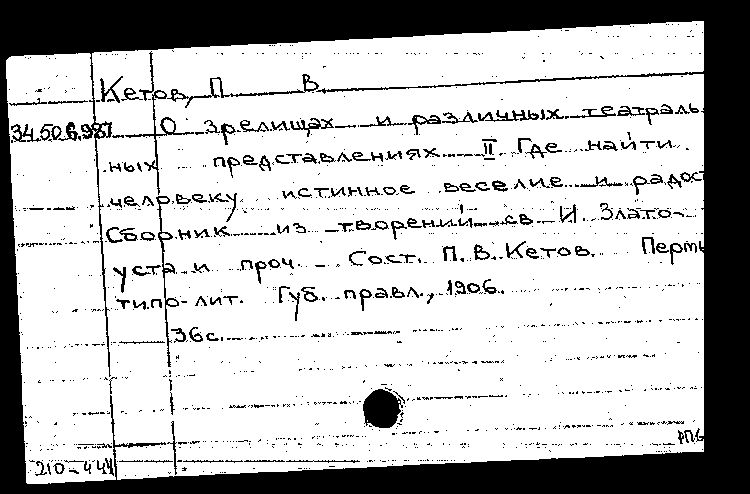 Кетов, П. В.
34.506.987 О зрелищах и различных театраль-
ных представлениях. II Где найти
человеку истинное веселие и радост
Сборник из творений св. И. Злато-
уста и проч. - Сост. П. В. Кетов. Пермь
типо-лит. Губ. правл., 1906.
36 с.
210-444